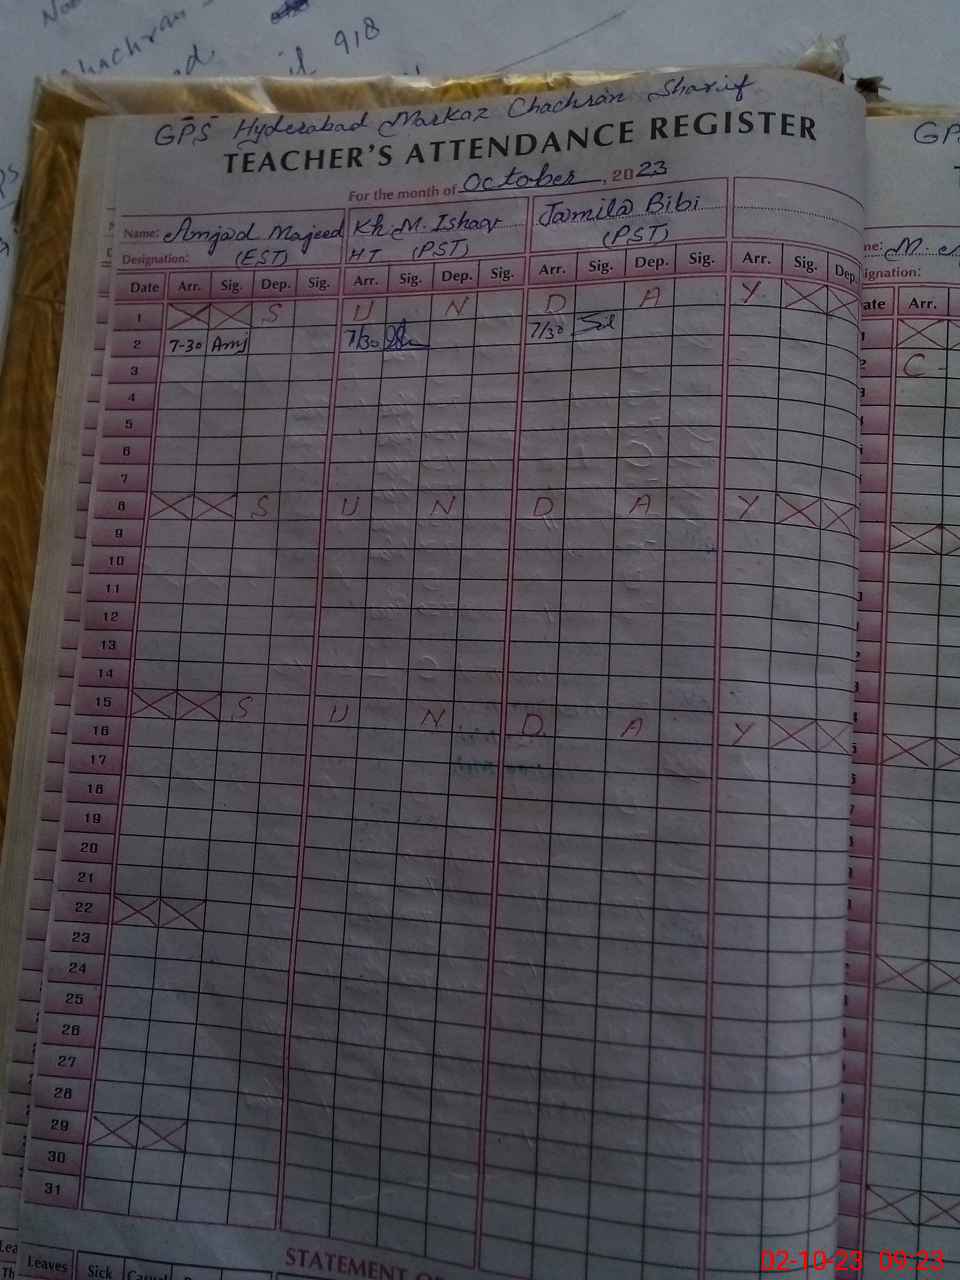 918
GPS Hyderabad Markaz Chachran Sharif
TEACHER'S ATTENDANCE REGISTER
For the month of October, 2023
Name: Amjad Majeed Kh M. Ishaq Jamila Bibi
Designation: (EST) HT (PST) (PST)
Date Arr. Sig. Dep. Sig. Arr. Sig. Dep. Sig. Arr. Sig. Dep. Sig. Arr. Sig. Dep.
1 S U N D A Y
2 7-30 Amj 7/30 7/30
3
4
5
6
7
8 S U N D A Y
9
10
11
12
13
14
15 S U N D A Y
16
17
18
19
20
21
22
23
24
25
26
27
28
29
30
31
STATEMENT O
Leaves Sick
GP
ignation:
Arr.
C
02-10-23 09:23